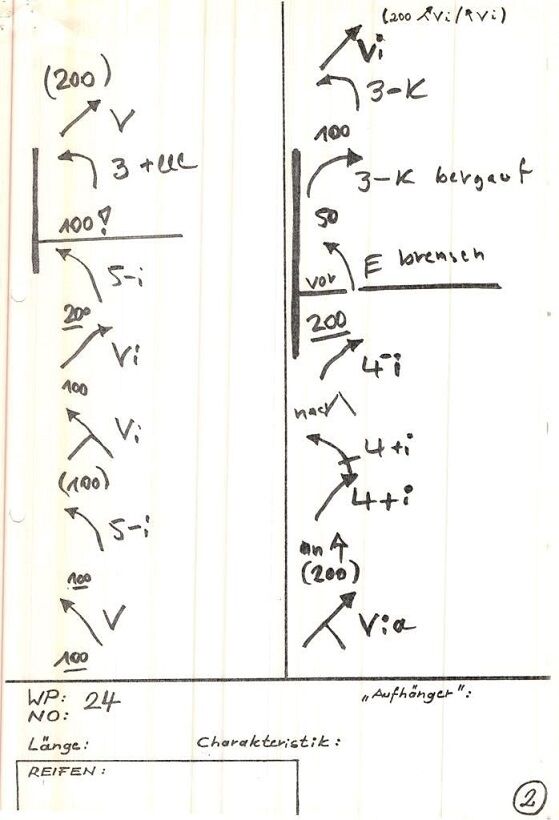 (200)
V
3
100!
5-i
200
Vi
100
Vi
(100)
5-i
100
V
100
(200 ↗Vi/↖Vi)
Vi
3-K
100
3-K bergauf
50
E bremsen
vor
200
4-i
nach
4+i
4+i
an ↑
(200)
Via
WP: 24
NO:
„Aufhänger":
Länge:
Charakteristik:
REIFEN:
2